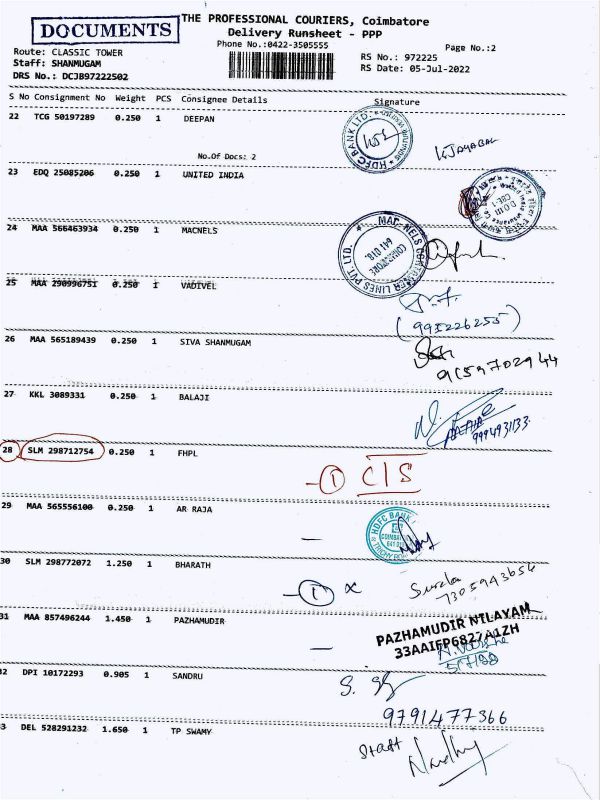 DOCUMENTS
THE PROFESSIONAL COURIERS, Coimbatore
Delivery Runsheet - PPP
Phone No.:0422-3505555
Page No.:2
Route: CLASSIC TOWER
Staff: SHANMUGAM
DRS No.: DCJB97222502
RS No.: 972225
RS Date: 05-Jul-2022
S No Consignment No Weight PCS Consignee Details Signature
22 TCG 50197289 0.250 1 DEEPAN
HDFC BANK LTD.
No.Of Docs: 2
23 EDQ 25085206 0.250 1 UNITED INDIA
24 MAA 566463934 0.250 1 MACNELS
MAC-NELS CONTAINER LINES PVT. LTD.
641 018.
COIMBATORE
25 MAA 290996751 0.250 1 VADIVEL
(995226255)
26 MAA 565189439 0.250 1 SIVA SHANMUGAM
9159702944
27 KKL 3089331 0.250 1 BALAJI
9994931133
28 SLM 298712754 0.250 1 FHPL
-① C/S
29 MAA 565556100 0.250 1 AR RAJA
HDFC BANK
30 SLM 298772072 1.250 1 BHARATH
-① x
7305943656
31 MAA 857496244 1.450 1 PAZHAMUDIR
PAZHAMUDIR NILAYAM
33AAIFP6827A1ZH
32 DPI 10172293 0.905 1 SANDRU
9791477366
33 DEL 528291232 1.650 1 TP SWAMY
Staff